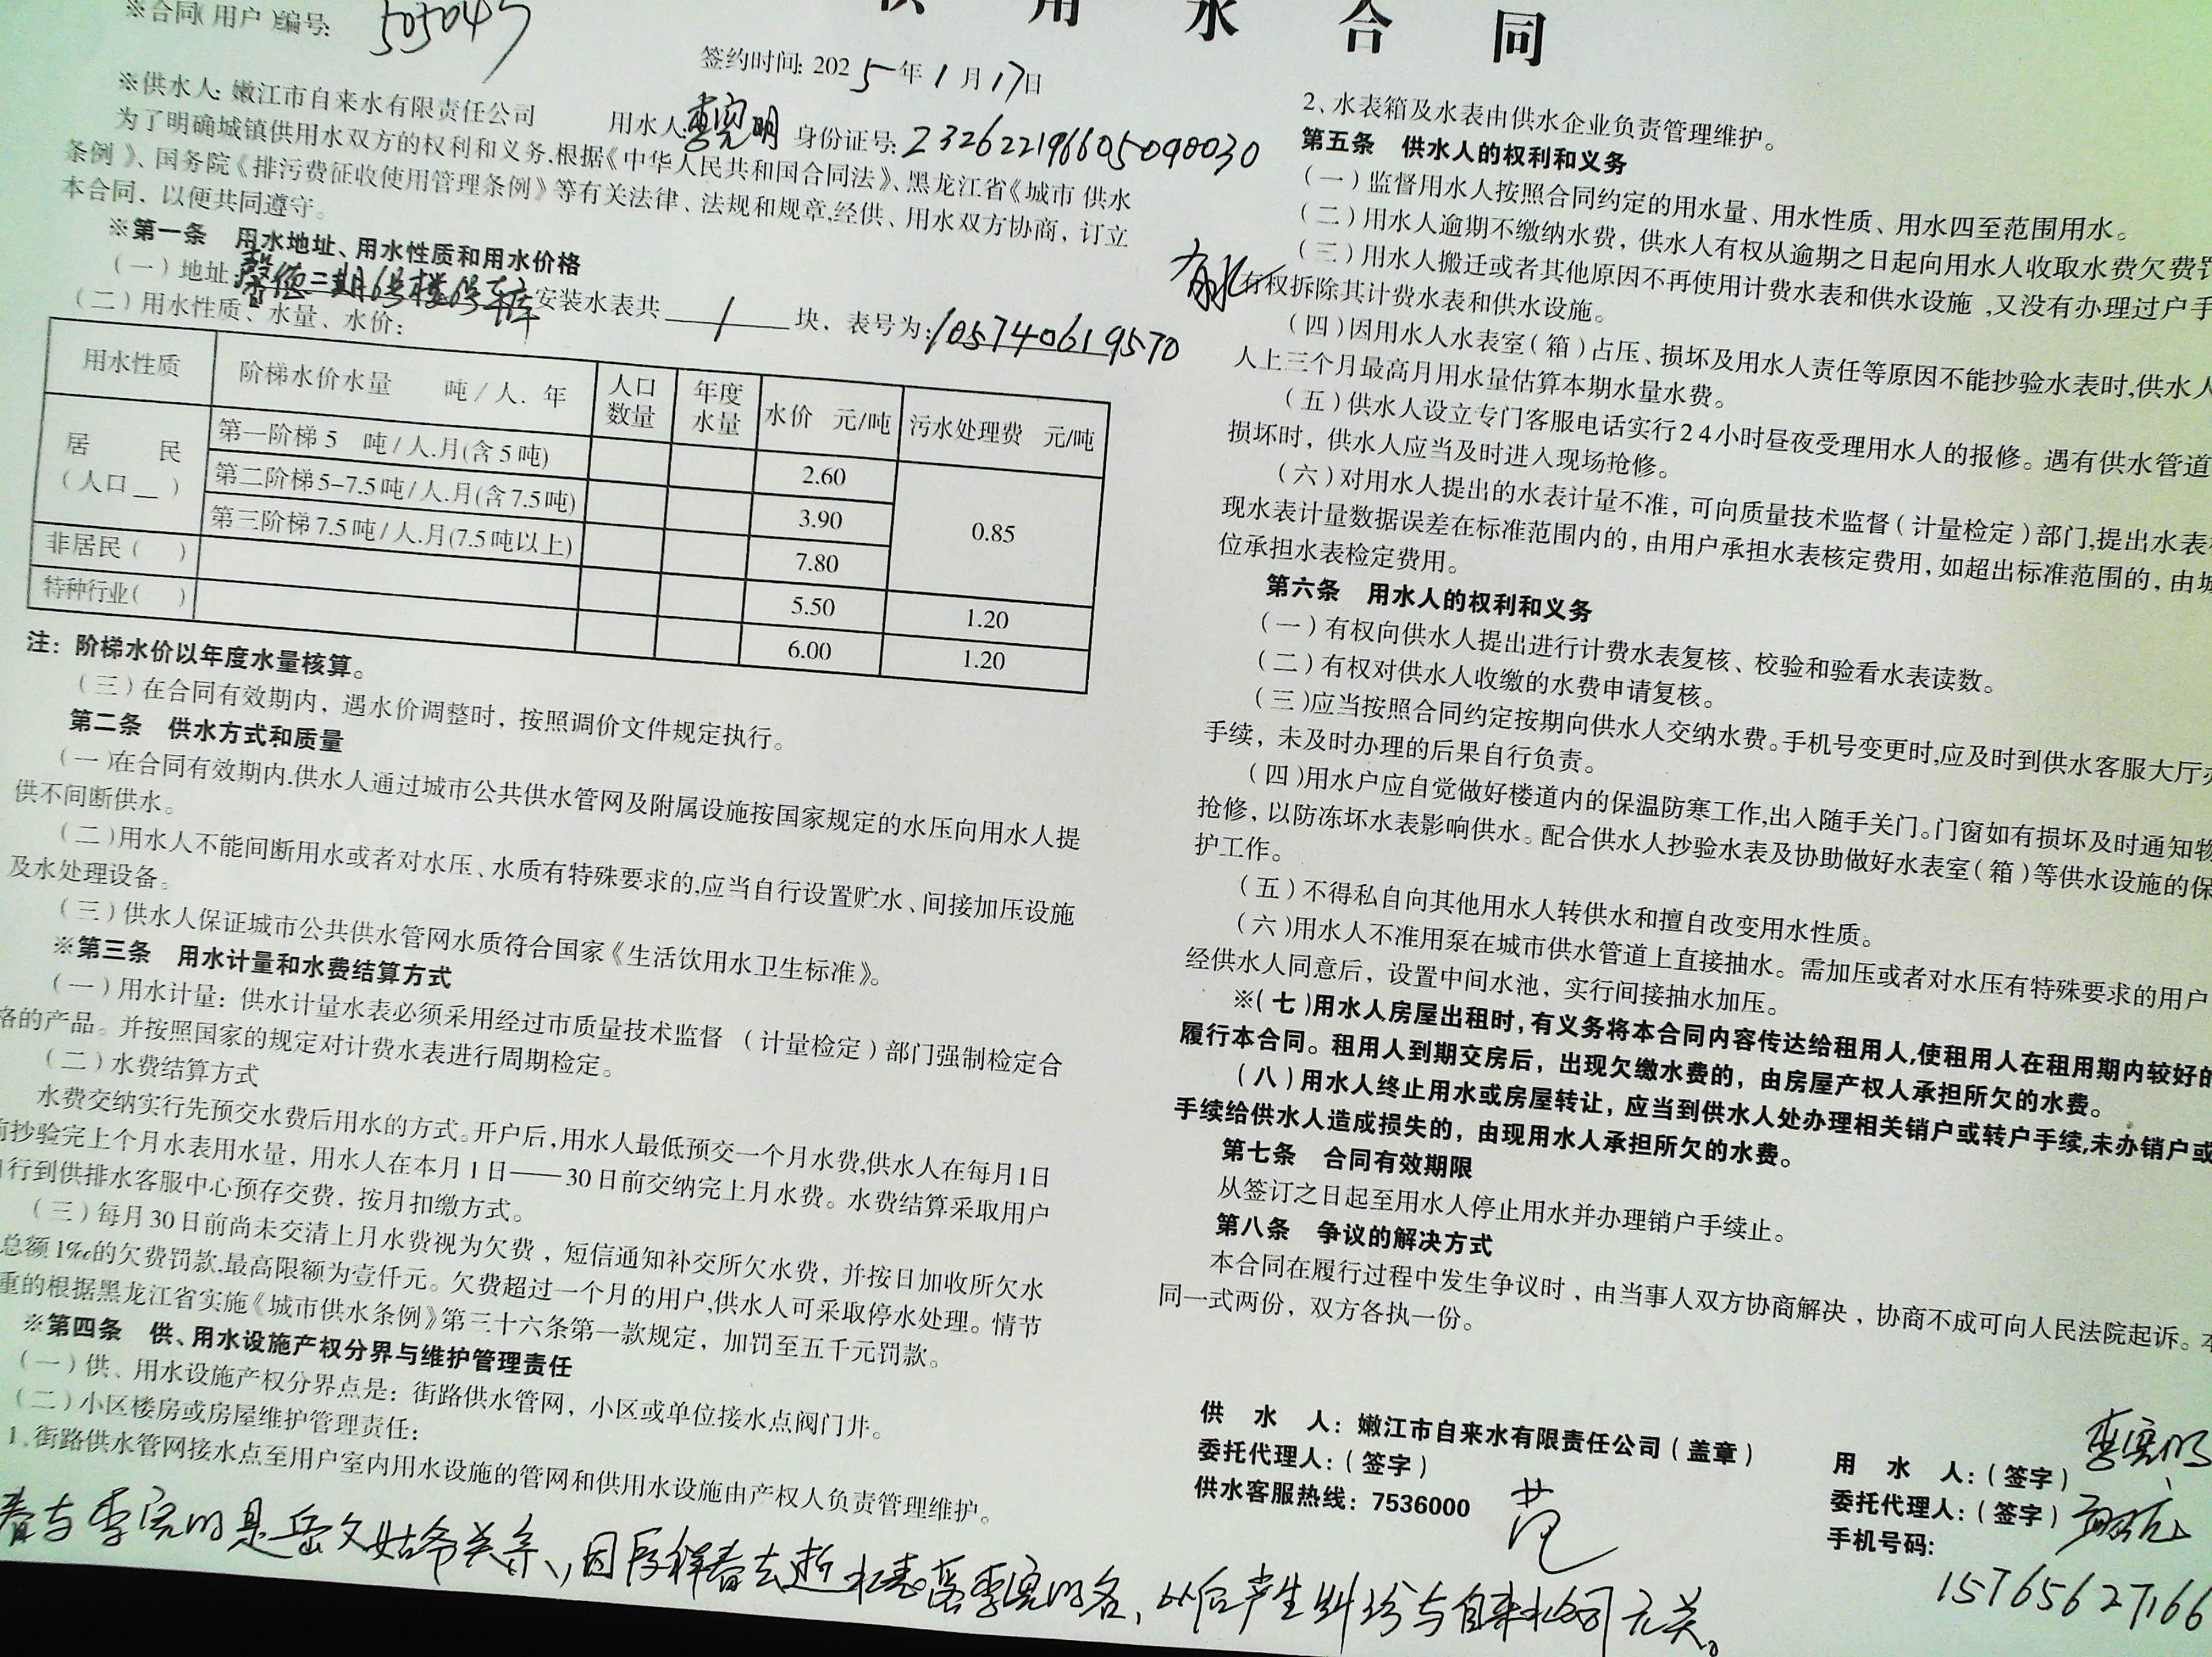 ※合同(用户)编号: 505045
供 用 水 合 同
签约时间: 2025年1月17日
※供水人: 嫩江市自来水有限责任公司 用水人: 李宪明 身份证号: 232622196605090030
为了明确城镇供用水双方的权利和义务,根据《中华人民共和国合同法》、黑龙江省《城市 供水
条例》、国务院《排污费征收使用管理条例》等有关法律、法规和规章,经供、用水双方协商，订立
本合同，以便共同遵守。
※第一条 用水地址、用水性质和用水价格
(一)地址: 馨德二期6号楼6号车库 安装水表共 1 块，表号为: 105740619570
(二)用水性质、水量、水价:
用水性质 阶梯水价水量 吨/人.年 人口数量 年度水量 水价 元/吨 污水处理费 元/吨
居 民 第一阶梯 5 吨/人.月(含5吨) 2.60
(人口__) 第二阶梯5-7.5吨/人.月(含7.5吨) 3.90 0.85
第三阶梯7.5吨/人.月(7.5吨以上) 7.80
非居民( ) 5.50 1.20
特种行业( ) 6.00 1.20
注：阶梯水价以年度水量核算。
(三)在合同有效期内，遇水价调整时，按照调价文件规定执行。
第二条 供水方式和质量
(一)在合同有效期内,供水人通过城市公共供水管网及附属设施按国家规定的水压向用水人提
供不间断供水。
(二)用水人不能间断用水或者对水压、水质有特殊要求的,应当自行设置贮水、间接加压设施
及水处理设备。
(三)供水人保证城市公共供水管网水质符合国家《生活饮用水卫生标准》。
※第三条 用水计量和水费结算方式
(一)用水计量：供水计量水表必须采用经过市质量技术监督 (计量检定)部门强制检定合
格的产品。并按照国家的规定对计费水表进行周期检定。
(二)水费结算方式
水费交纳实行先预交水费后用水的方式。开户后,用水人最低预交一个月水费,供水人在每月1日
前抄验完上个月水表用水量，用水人在本月1日——30日前交纳完上月水费。水费结算采取用户
自行到供排水客服中心预存交费，按月扣缴方式。
(三)每月30日前尚未交清上月水费视为欠费，短信通知补交所欠水费，并按日加收所欠水
总额1‰的欠费罚款,最高限额为壹仟元。欠费超过一个月的用户,供水人可采取停水处理。情节
重的根据黑龙江省实施《城市供水条例》第三十六条第一款规定，加罚至五千元罚款。
※第四条 供、用水设施产权分界与维护管理责任
(一)供、用水设施产权分界点是：街路供水管网，小区或单位接水点阀门井。
(二)小区楼房或房屋维护管理责任：
1、街路供水管网接水点至用户室内用水设施的管网和供用水设施由产权人负责管理维护。
2、水表箱及水表由供水企业负责管理维护。
第五条 供水人的权利和义务
(一)监督用水人按照合同约定的用水量、用水性质、用水四至范围用水。
(二)用水人逾期不缴纳水费，供水人有权从逾期之日起向用水人收取水费欠费罚
(三)用水人搬迁或者其他原因不再使用计费水表和供水设施，又没有办理过户手
有权拆除其计费水表和供水设施。
(四)因用水人水表室(箱)占压、损坏及用水人责任等原因不能抄验水表时,供水人
人上三个月最高月用水量估算本期水量水费。
(五)供水人设立专门客服电话实行24小时昼夜受理用水人的报修。遇有供水管道
损坏时，供水人应当及时进入现场抢修。
(六)对用水人提出的水表计量不准，可向质量技术监督(计量检定)部门,提出水表
现水表计量数据误差在标准范围内的，由用户承担水表核定费用，如超出标准范围的，由城
位承担水表检定费用。
第六条 用水人的权利和义务
(一)有权向供水人提出进行计费水表复核、校验和验看水表读数。
(二)有权对供水人收缴的水费申请复核。
(三)应当按照合同约定按期向供水人交纳水费。手机号变更时,应及时到供水客服大厅办
手续，未及时办理的后果自行负责。
(四)用水户应自觉做好楼道内的保温防寒工作,出入随手关门。门窗如有损坏及时通知物
抢修，以防冻坏水表影响供水。配合供水人抄验水表及协助做好水表室(箱)等供水设施的保
护工作。
(五)不得私自向其他用水人转供水和擅自改变用水性质。
(六)用水人不准用泵在城市供水管道上直接抽水。需加压或者对水压有特殊要求的用户
经供水人同意后，设置中间水池，实行间接抽水加压。
※(七)用水人房屋出租时,有义务将本合同内容传达给租用人,使租用人在租用期内较好的
履行本合同。租用人到期交房后，出现欠缴水费的，由房屋产权人承担所欠的水费。
(八)用水人终止用水或房屋转让，应当到供水人处办理相关销户或转户手续,未办销户或
手续给供水人造成损失的，由现用水人承担所欠的水费。
第七条 合同有效期限
从签订之日起至用水人停止用水并办理销户手续止。
第八条 争议的解决方式
本合同在履行过程中发生争议时，由当事人双方协商解决，协商不成可向人民法院起诉。本
同一式两份，双方各执一份。
供 水 人：嫩江市自来水有限责任公司(盖章)
委托代理人：(签字)
供水客服热线：7536000 范
用 水 人：(签字) 李宪明
委托代理人：(签字)
手机号码：
15765627166
春与李宪明是岳父姑爷关系，因 祥春去逝水表落李宪明名，以后产生纠纷与自来水公司无关。